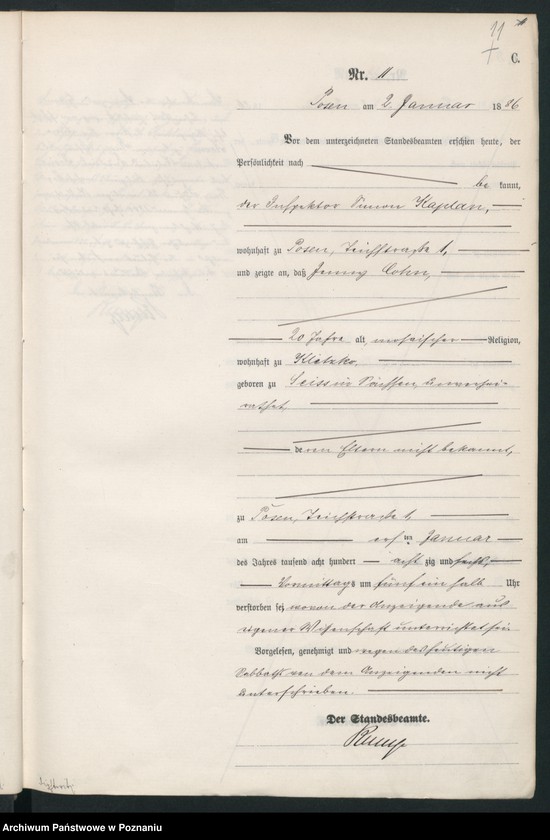 11
C.
Nr. 11
Posen am 2. Januar 1886
Vor dem unterzeichneten Standesbeamten erschien heute, der
Persönlichkeit nach
be kannt,
der Inspektor Simon Kaplan,
wohnhaft zu Posen, Teichstraße 1,
und zeigte an, daß Jenny Cohn,
20 Jahre alt, mosaischer Religion,
wohnhaft zu Kletzko,
geboren zu in Sachsen, unverhei-
rathet,
deren Eltern nicht bekannt,
zu Posen, Teichstraße 1,
am ersten Januar
des Jahres tausend acht hundert achtzig und sechs,
Vormittags um fünf ein halb Uhr
verstorben sei, wovon der Anzeigende aus
eigener Wissenschaft unterrichtet sei.
Vorgelesen, genehmigt und wegen des heutigen
Sabbaths von dem Anzeigenden nicht
unterschrieben.
Der Standesbeamte.
Archiwum Państwowe w Poznaniu